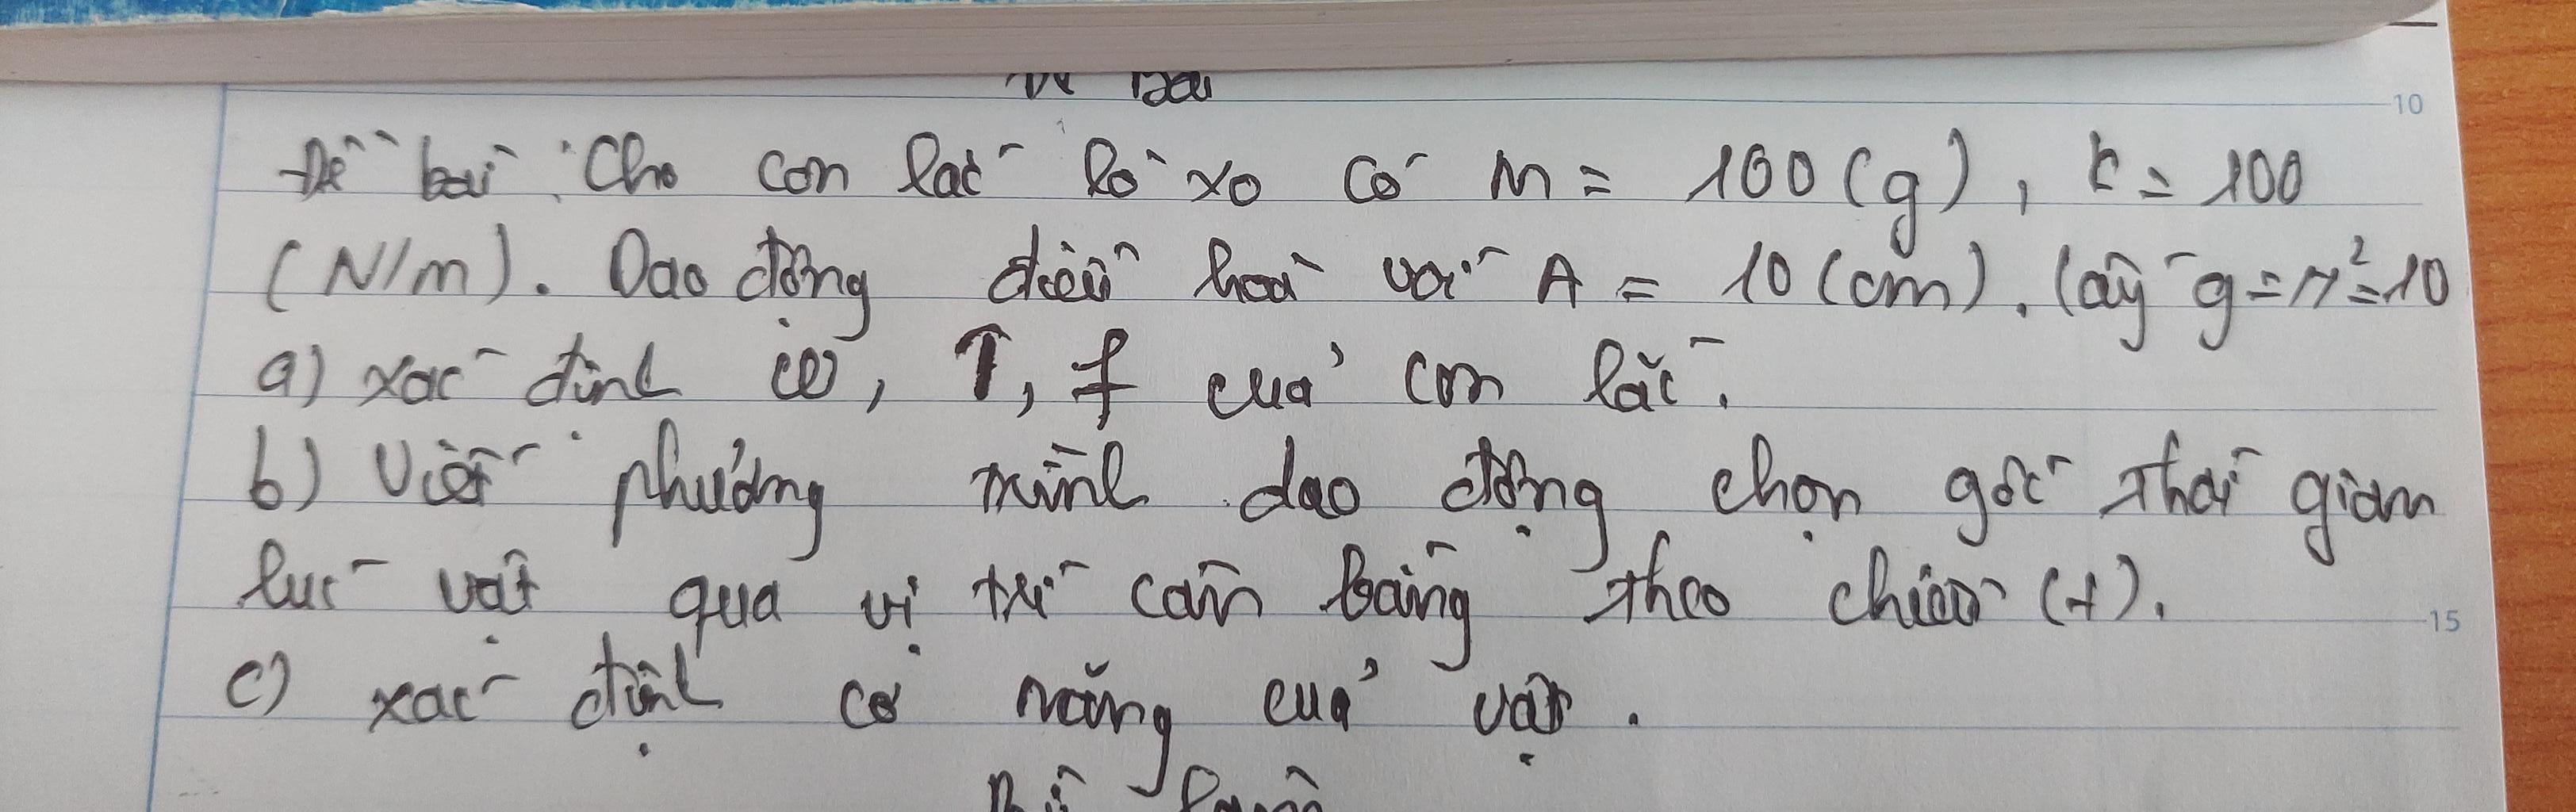 Đề bài: Cho con lắc lò xo có m = 100 (g), k = 100
(N/m). Dao động điều hoà với A = 10 (cm). lấy g = π² = 10
a) xác định ω, T, f của con lắc.
b) Viết phương trình dao động chọn gốc thời gian
lúc vật qua vị trí cân bằng theo chiều (+).
c) xác định cơ năng của vật.
10
15